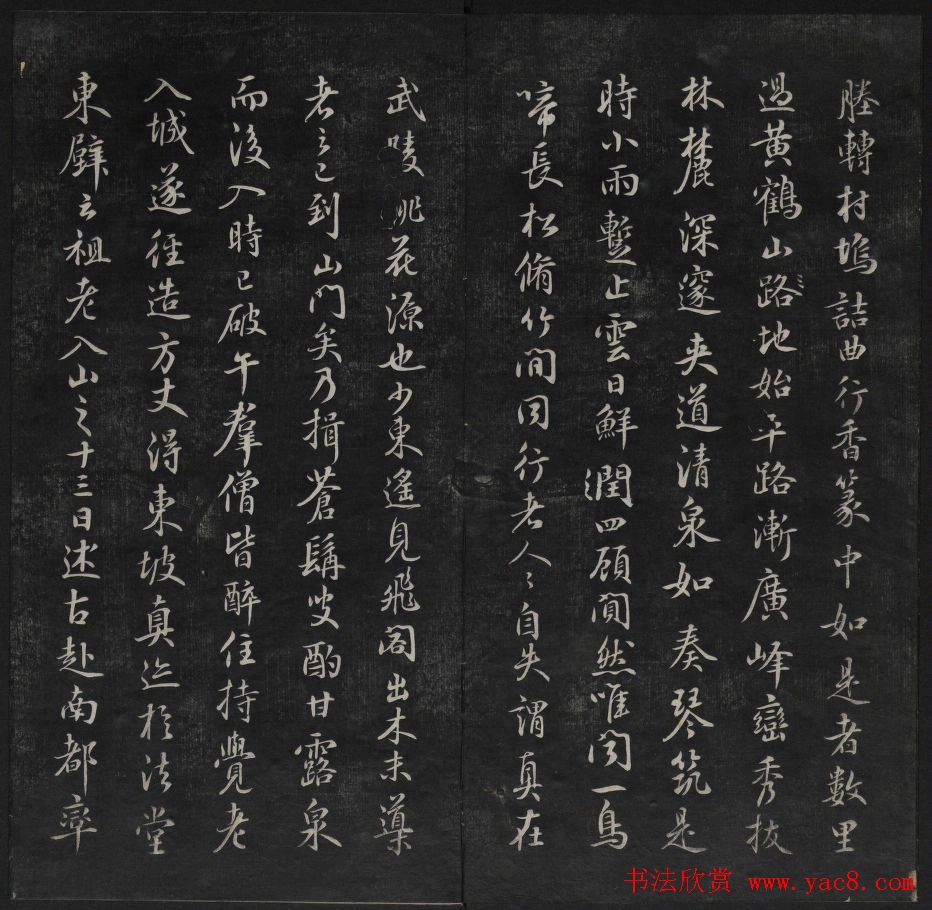 塍轉村塢詰曲行香篆中如是者數里
過黃鶴山路地始平路漸廣峰巒秀拔
林麓深邃夾道清泉如奏琴筑是
時小雨蹔止雲日鮮潤四顧闃然唯聞一鳥
啼長松脩竹間同行老人〻自失謂真在
武陵桃花源也少東遙見飛閣出木末導
者云已到山門矣乃揖蒼髯叟酌甘露泉
而後入時已破午群僧皆醉住持覺老
入城遂徑造方丈得東坡真迹於法堂
東壁云祖老入山之十三日述古赴南都率
书法欣赏 www.yac8.com